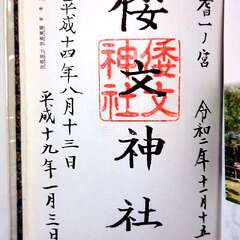 耆一ノ宮
令和二年十一月十五
倭文神社
倭文
神社
平成十四年八月十三日
平成十九年一月三日